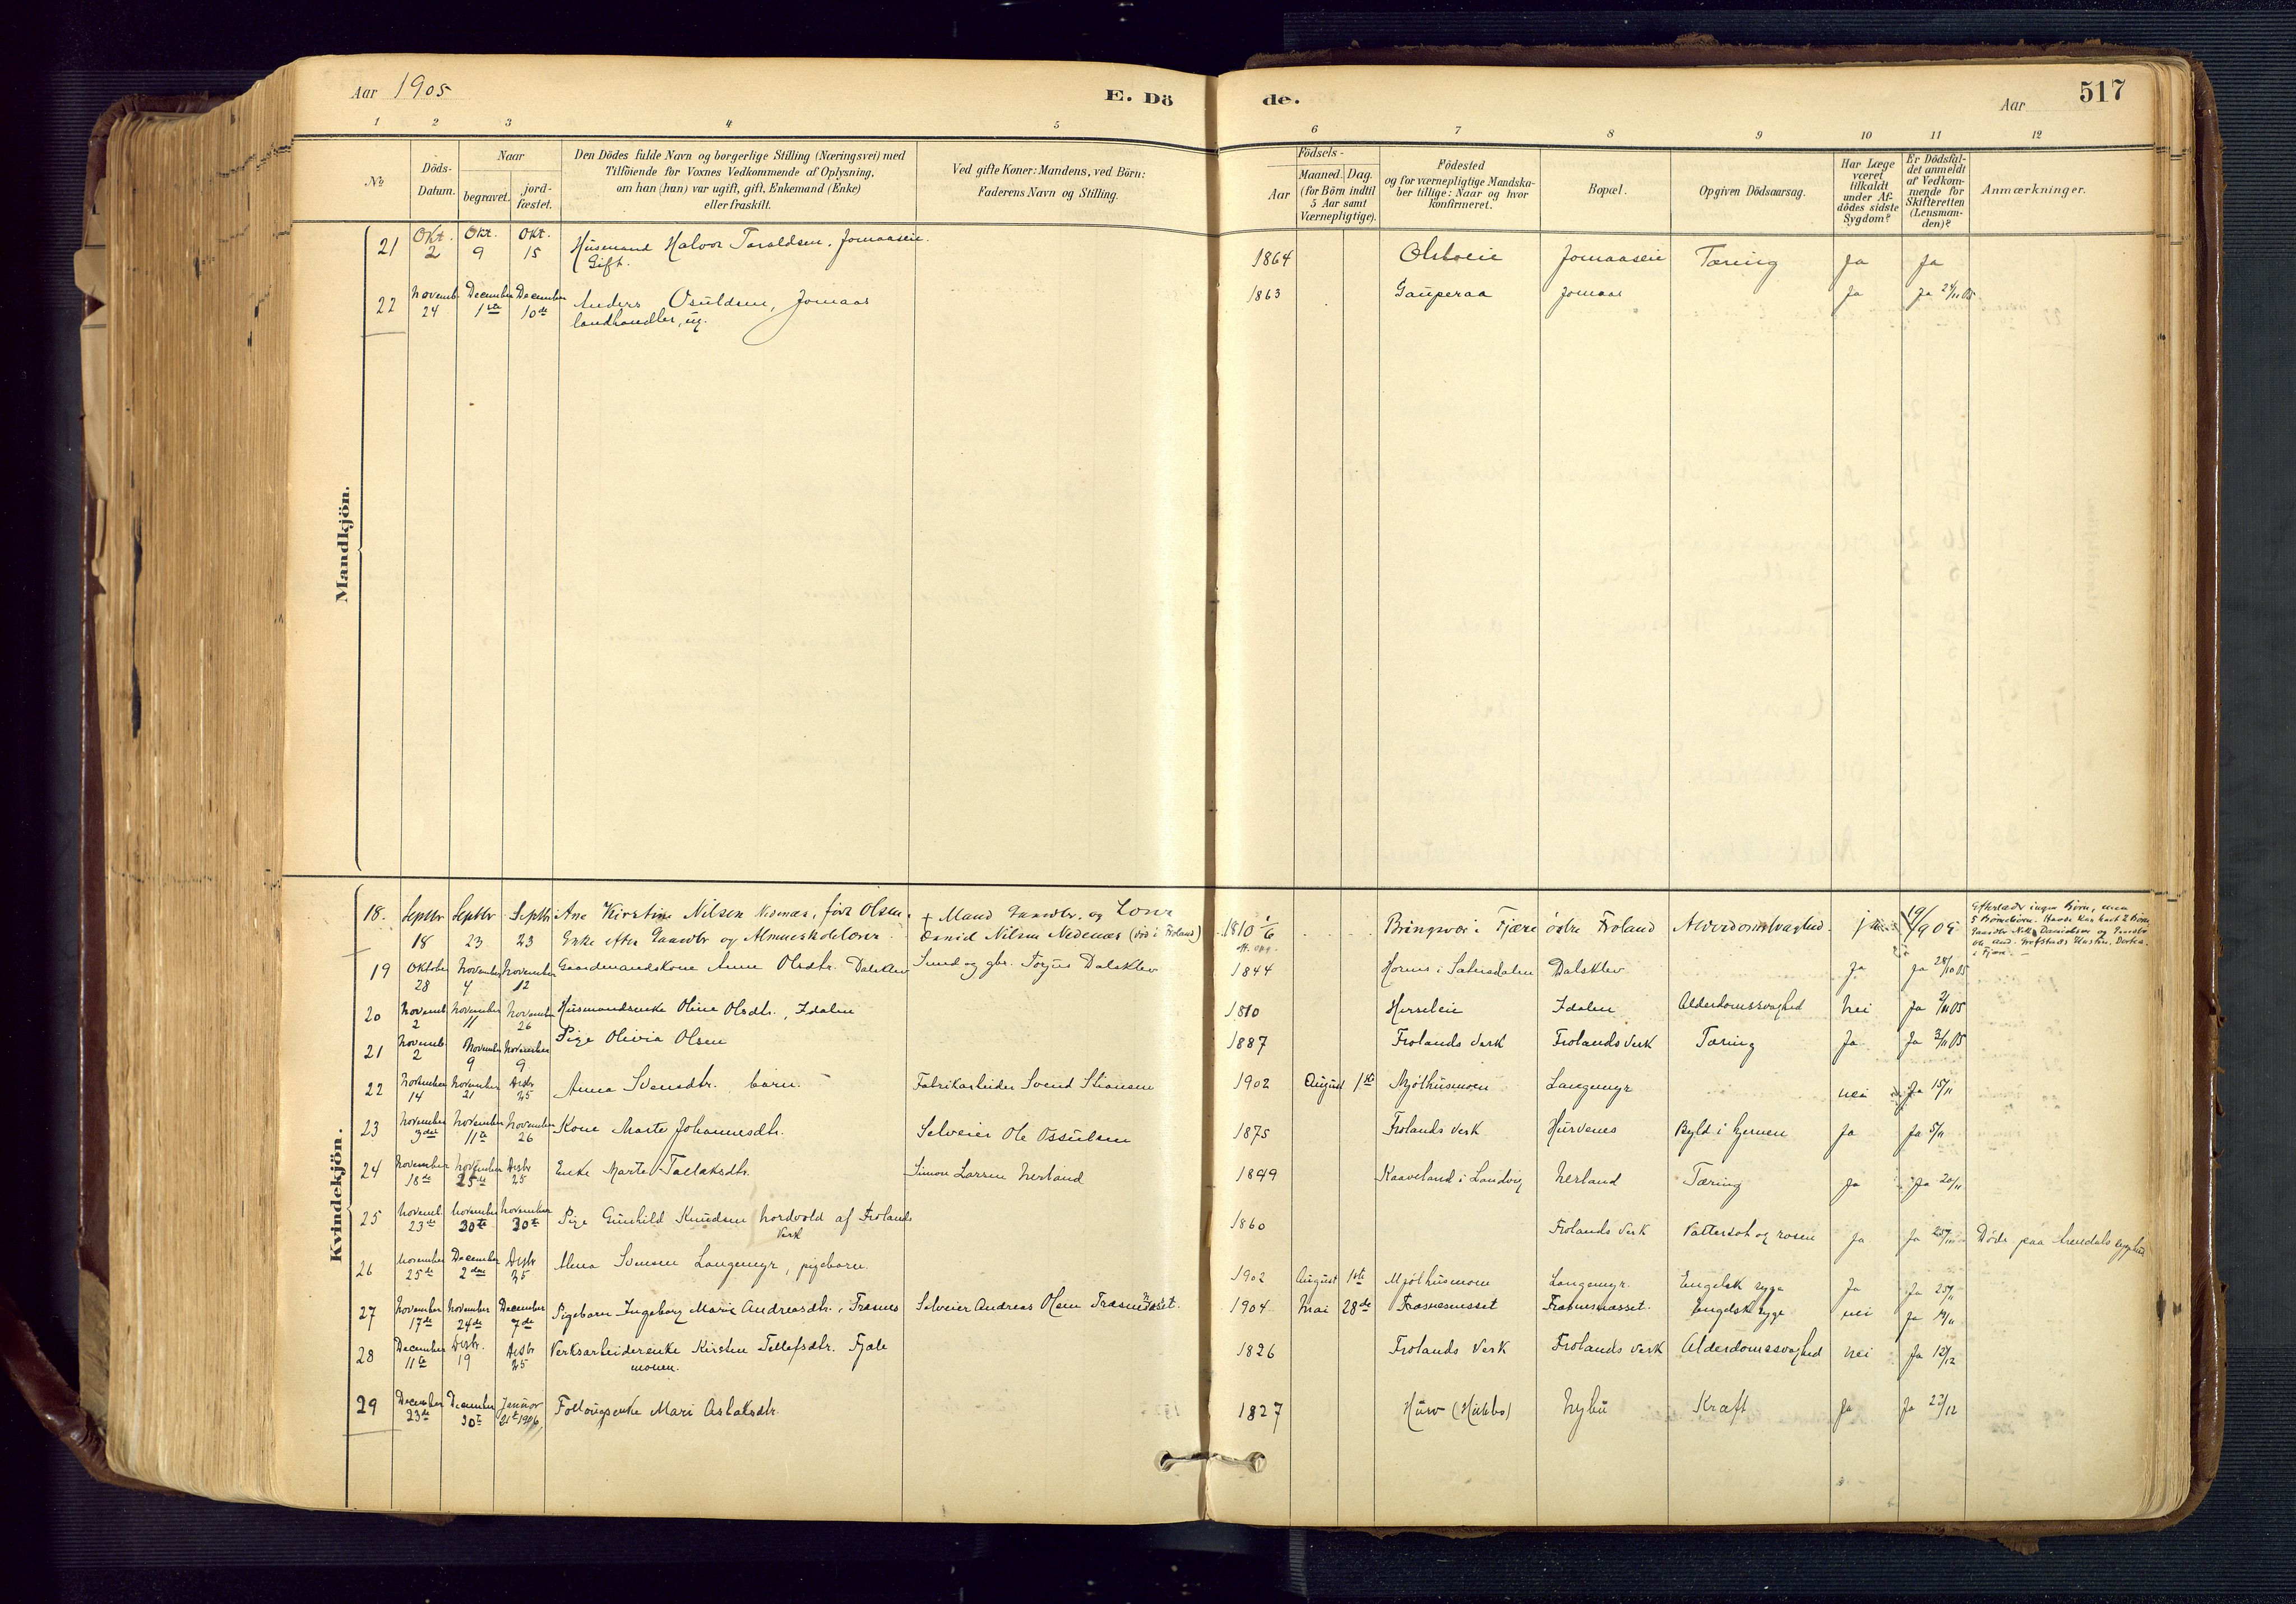 Aar 1905
E. Dö
de.
Aar
517
1 2 3 4 5 6 7 8 9 10 11 12
No
Döds-Datum.
Naar
begravet.
jord-fæstet.
Den Dödes fulde Navn og borgerlige Stilling (Næringsvei) med
Tilföiende for Voxnes Vedkommende af Oplysning,
om han (hun) var ugift, gift, Enkemand (Enke)
eller fraskilt.
Ved gifte Koner: Mandens, ved Börn:
Faderens Navn og Stilling.
Födsels-
Aar
Maaned. Dag.
(for Börn indtil
5 Aar samt
Værnepligtige).
Födested
og for værnepligtige Mandska-
ber tillige: Naar og hvor
konfirmeret.
Bopæl.
Opgiven Dödsaarsag.
Har Læge
været
tilkaldt
under Af-
dödes sidste
Sygdom?
Er Dödsfal-
det anmeldt
af Vedkom-
mende for
Skifteretten
(Lensman-
den)?
Anmærkninger.
Mandkjön.
21 Okt. 2 Okt. 9 Okt. 15 Husmand Halvor Taraldsen, Jomaaseie. Gift. 1864 Jomaaseie Tæring Ja Ja
22 Novemb. 24 December 1ste December 10de Anders Osuldsen, Jomaas landhandler, ug. 1863 Gauperaa Jomaas Ja Ja 24/11 05
Kvindekjön.
18. Septbr 18 Septbr 23 Septbr 23 Ane Kirstine Nilsen Nedenæs, född Olsen. Enke efter Gaardbr og + Mand Gaardbr. og Daniel Nilsen Nedenæs 1810 Bringsvær i Fjære östre Froland 19/9 05
19 Oktober 28 November 4 November 12 Gaardmandskone Anne Olsdtr. Dalsklev gbr. Torjus Dalsklev 1844 Hornes i Sætersdalen Dalsklev Ja Ja 28/10 05
20 Novemb 2 November 11 November 26 Husmandsenke Oline Olsdtr., Idalen 1810 Herseleie Idalen Alderdomssvaghed Nei Ja 2/11 05
21 Novemb 2 November 9 November 9 Pige Olivia Olsen 1887 Frolands Verk Frolands Verk Tæring Ja Ja 3/11 05
22 November 14 November 21 Desbr 25 Anna Svensdtr. barn. Fabrikarbeider Svend Stiansen 1902 August 1ste Mjölhusmoen Langemyr nei Ja 15/11
23 November 3die November 11te November 26 Kone Marte Johannesdtr. Selveier Ole Ossulsen 1875 Frolands Verk Hurvenes Byld i hjernen Ja Ja 5/11
24 November 18de November 25de Desbr 25 Enke Marte Tallaksdtr. Simon Larsen Nerland 1849 Kaaveland i Landvig Nerland Tæring Ja Ja 20/11
25 Novemb. 23de November 30te November 30te Pige Gunhild Knudsen Nordvold af Frolands Verk 1860 Frolands Verk Vattersot og rosen Ja Ja Döde paa Arendals sygehus
26 November 25de December 2den Desbr 25 Alma Svensen Langemyr, pigebarn. 1902 August 1ste Mjölhusmoen Langemyr. Engelsk syge Ja Ja 25/11
27 November 17de November 24de December 7de Pigebarn Ingeborg Marie Andreasdtr., Træsnes Selveier Andreas Olsen 1904 Mai 28de Engelsk syge nei Ja 19/11
28 December 11te Desbr. 19 Desbr 25 Verksarbeiderenke Kirsten Tellefsdtr. Fjalemonen. 1826 Frolands Verk Frolands Verk Alderdomssvaghed Nei Ja 12/12
29 December 23de December 30te Januar 21te 1906 Follougsenke Mari Aslaksdtr. 1827 Hurv Nybu Kræft Ja Ja 23/12